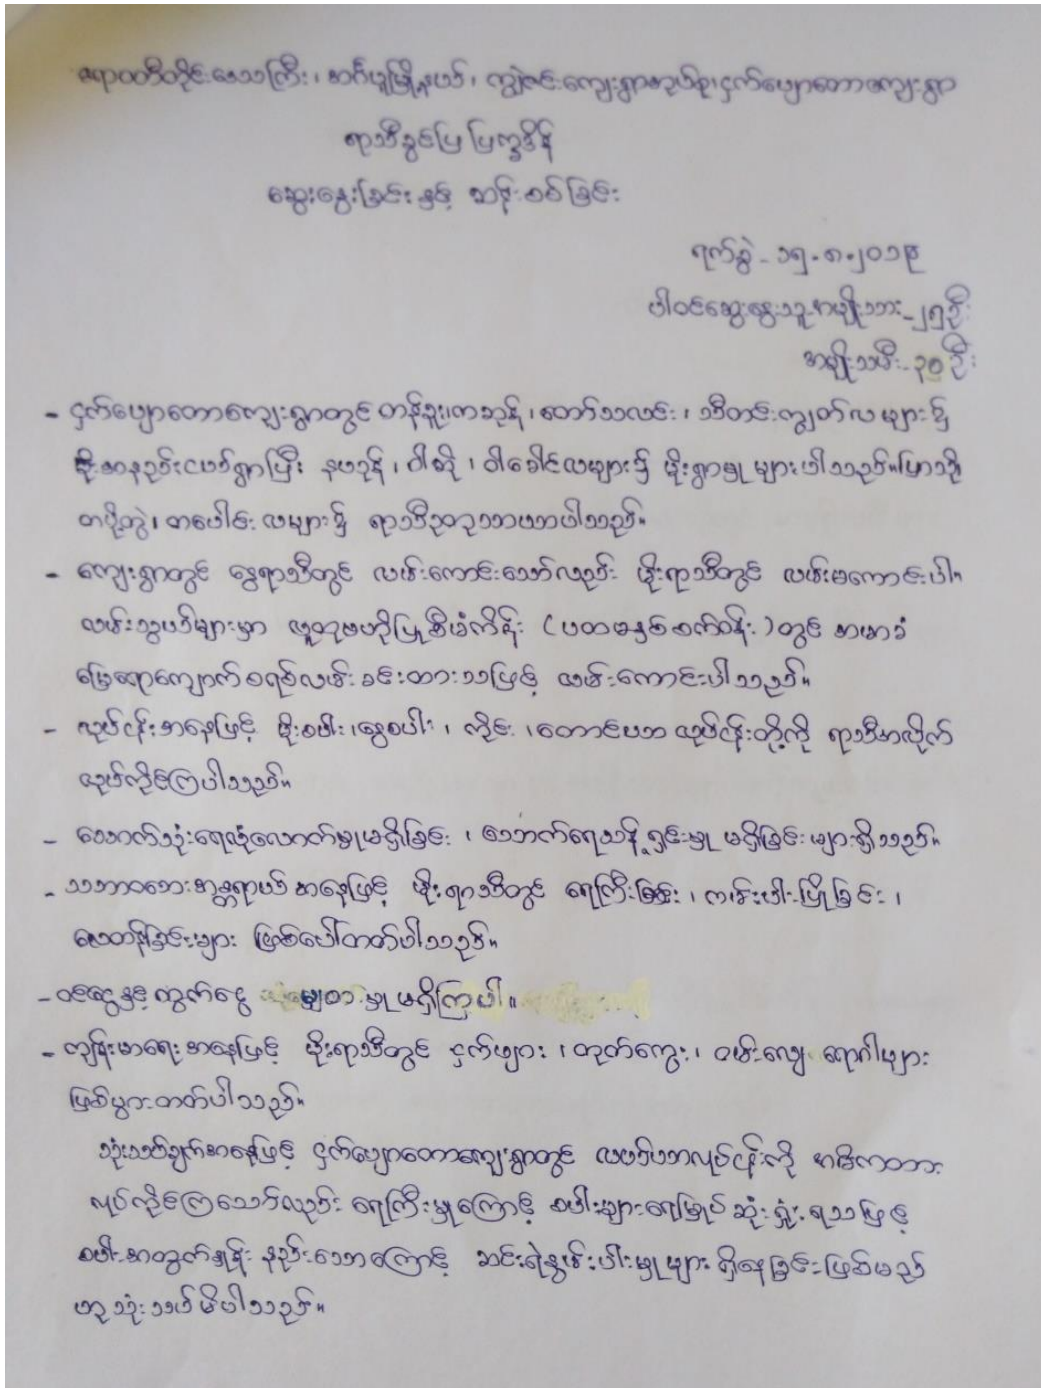 ဧရာဝတီတိုင်းဒေသကြီး၊ အင်္ဂပူမြို့နယ်၊ ကျွဲဇင်းကျေးရွာအုပ်စု၊ ငှက်ပျောတောကျေးရွာ
ရာသီခွင်ပြ ပြက္ခဒိန်
ဆွေးနွေးခြင်း နှင့် ဆန်းစစ်ခြင်း
ရက်စွဲ - ၁၅.၈.၂၀၁၉
ပါဝင်ဆွေးနွေးသူ အမျိုးသား - ၂၅ ဦး
အမျိုးသမီး - ၃၀ ဦး
- ငှက်ပျောတောကျေးရွာတွင် တန်ခူး၊ ကဆုန်၊ တော်သလင်း၊ သီတင်းကျွတ်လ များ၌
မိုးအနည်းငယ်ရွာပြီး နယုန်၊ ဝါဆို၊ ဝါခေါင်လများ၌ မိုးရွာမှု များပါသည်။ ပြာသို
တပို့တွဲ၊ တပေါင်း လများ၌ ရာသီဥတုသာယာပါသည်။
- ကျေးရွာတွင် နွေရာသီတွင် လမ်းကောင်းသော်လည်း မိုးရာသီတွင် လမ်းမကောင်းပါ။
လမ်းသွယ်များမှာ လူထုဗဟိုပြုစီမံကိန်း (ပထမနှစ်စက်ဝန်း) တွင် အမာခံ
မြေရောကျောက်စရစ်လမ်း ခင်းထားသဖြင့် လမ်းကောင်းပါသည်။
- လုပ်ငန်းအနေဖြင့် မိုးစပါး၊ နွေစပါး၊ ကိုင်း၊ တောင်ယာ လုပ်ငန်းတို့ကို ရာသီအလိုက်
လုပ်ကိုင်ကြပါသည်။
- သောက်သုံးရေလုံလောက်မှုမရှိခြင်း၊ သောက်ရေသန့်ရှင်းမှု မရှိခြင်းများရှိသည်။
- သဘာဝဘေးအန္တရာယ် အနေဖြင့် မိုးရာသီတွင် ရေကြီးခြင်း၊ ကမ်းပါးပြိုခြင်း၊
လေတိုက်ခြင်းများ ဖြစ်ပေါ်တတ်ပါသည်။
- ဝင်ငွေနှင့် ထွက်ငွေ မျှတမှု မရှိကြပါ။
- ကျန်းမာရေး အနေဖြင့် မိုးရာသီတွင် ငှက်ဖျား၊ တုတ်ကွေး၊ ဝမ်းလျှော ရောဂါများ
ဖြစ်ပွားတတ်ပါသည်။
သုံးသပ်ချက်အနေဖြင့် ငှက်ပျောတောကျေးရွာတွင် လယ်ယာလုပ်ငန်းကို အဓိကထား
လုပ်ကိုင်ကြသော်လည်း ရေကြီးမှုကြောင့် စပါးများရေမြုပ်ဆုံးရှုံးရသဖြင့်
စပါးအထွက်နှုန်း နည်းသောကြောင့် ဆင်းရဲနွမ်းပါးမှုများ ရှိနေခြင်းဖြစ်မည်
ဟု သုံးသပ်မိပါသည်။